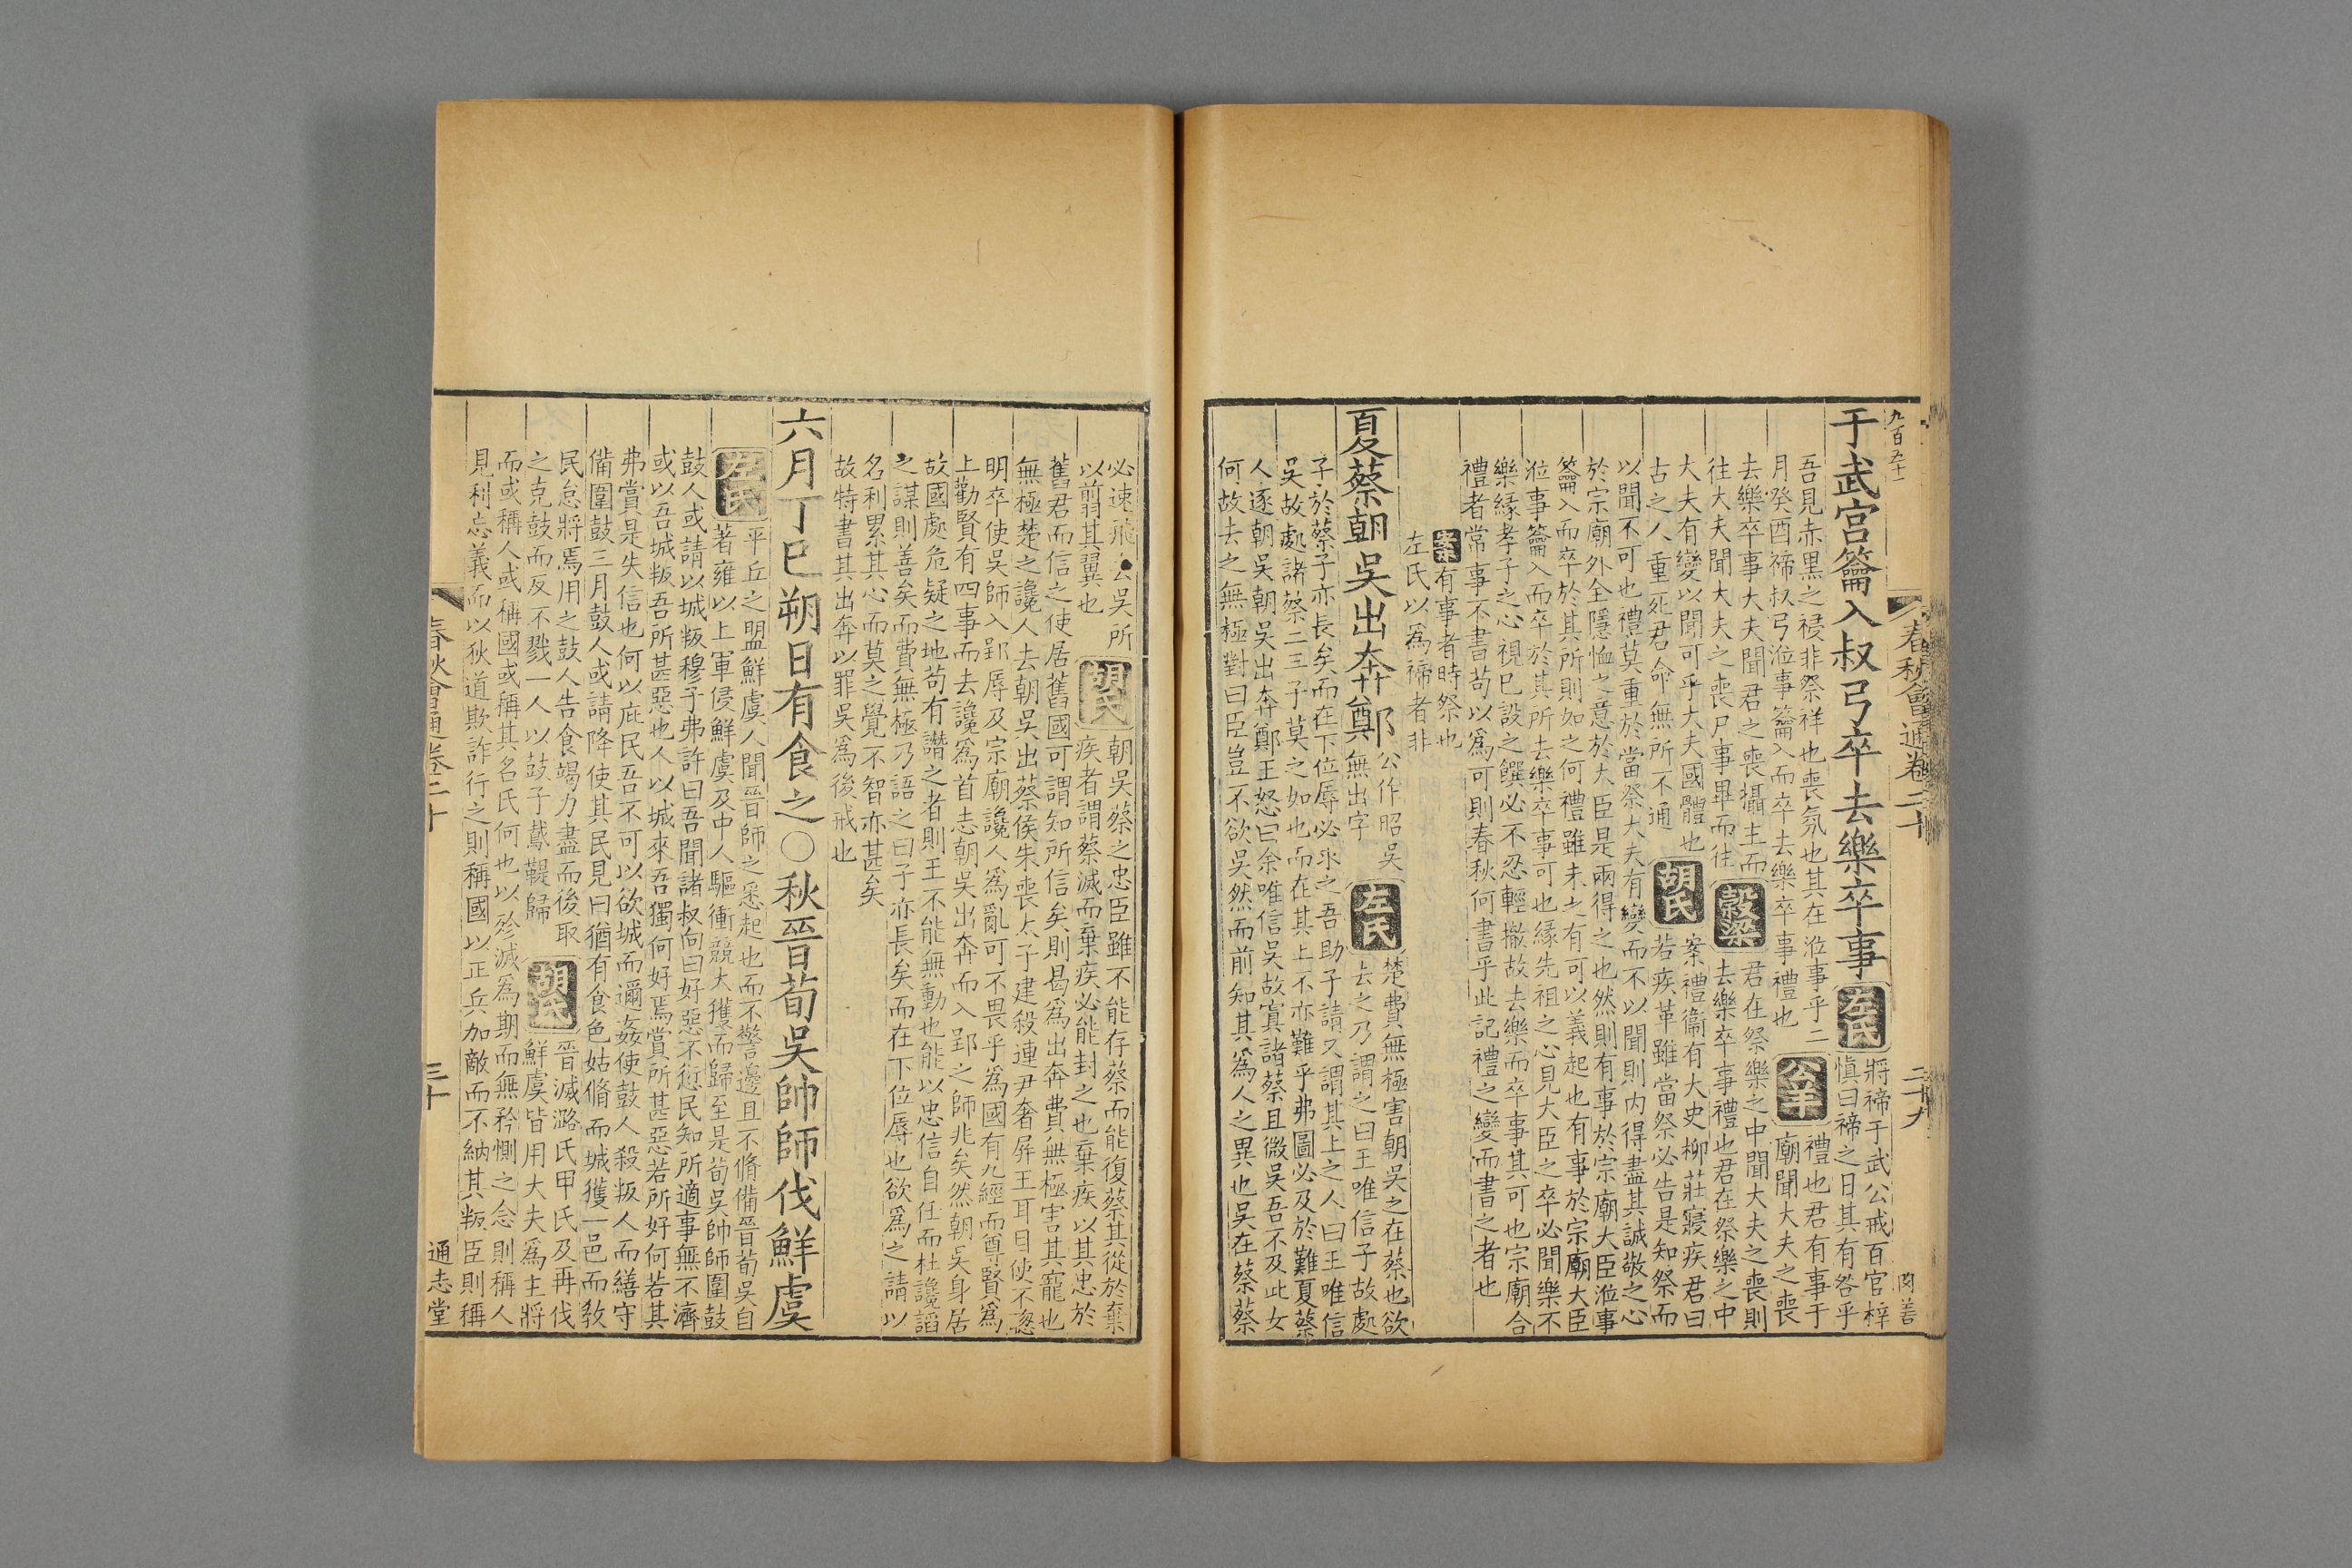 九百五十一
春秋會通卷二十
二十九
于武宮籥入叔弓卒去樂卒事
左氏
將禘于武公戒百官梓
慎曰禘之日其有咎乎
吾見赤黑之祲非祭祥也喪氛也其在涖事乎二
月癸酉禘叔弓涖事籥入而卒去樂卒事禮也
公羊
禮也君有事于
廟聞大夫之喪
去樂卒事大夫聞君之喪攝主而
往大夫聞大夫之喪尸事畢而往
穀梁
君在祭樂之中聞大夫之喪則
去樂卒事禮也君在祭樂之中
大夫有變以聞可乎大夫國體也
古之人重死君命無所不通
胡氏
案禮衞有大史柳莊寢疾君曰
若疾革雖當祭必告是知祭而
以聞不可也禮莫重於當祭大夫有變而不以聞則内得盡其誠敬之心
於宗廟外全隱恤之意於大臣是兩得之也然則有事於宗廟大臣涖事
籥入而卒於其所則如之何禮雖未之有可以義起也有事於宗廟大臣
涖事籥入而卒於其所去樂卒事可也縁先祖之心見大臣之卒必聞樂不
樂縁孝子之心視已設之饌必不忍輕撤故去樂而卒事其可也宗廟合
禮者常事不書苟以為可則春秋何書乎此記禮之變而書之者也
案
有事者時祭也
左氏以為禘者非
夏蔡朝吳出奔鄭
公作昭吳
無出字
左氏
楚費無極害朝吳之在蔡也欲
去之乃謂之曰王唯信子故處
子於蔡子亦長矣而在下位辱必求之吾助子請又謂其上之人曰王唯信
吳故處諸蔡二三子莫之如也而在其上不亦難乎弗圖必及於難夏蔡
人逐朝吳朝吳出奔鄭王怒曰余唯信吳故寘諸蔡且微吳吾不及此女
何故去之無極對曰臣豈不欲吳然而前知其為人之異也吳在蔡蔡
必速飛去吳所
以翦其翼也
胡氏
朝吳蔡之忠臣雖不能存蔡而能復蔡其從於棄
疾者謂蔡滅而棄疾必能封之也棄疾以其忠於
舊君而信之使居舊國可謂知所信矣則曷為出奔費無極害其寵也
無極楚之讒人去朝吳出蔡侯朱喪太子建殺連尹奢屏王耳目使不聦
明卒使吳師入郢辱及宗廟讒人為亂可不畏乎為國有九經而尊賢為
上勸賢有四事而去讒為首志朝吳出奔而入郢之師兆矣然朝吳身居
故國處危疑之地苟有譛之者則王不能無動也能以忠信自任而杜讒謟
之謀則善矣而費無極乃語之曰子亦長矣而在下位辱也欲為之請以
名利累其心而莫之覺不智亦甚矣
故特書其出奔以罪吳為後戒也
六月丁巳朔日有食之○秋晉荀吳帥師伐鮮虞
左氏
平丘之盟鮮虞人聞晉師之悉起也而不警邊且不脩備晉荀吳自
著雍以上軍侵鮮虞及中人驅衝競大獲而歸至是荀吳帥師圍鼓
鼓人或請以城叛穆子弗許曰吾聞諸叔向曰好惡不愆民知所適事無不濟
或以吾城叛吾所甚惡也人以城來吾獨何好焉賞所甚惡若所好何若其
弗賞是失信也何以庇民吾不可以欲城而邇姦使鼓人殺叛人而繕守
備圍鼓三月鼓人或請降使其民見曰猶有食色姑脩而城獲一邑而教
民怠將焉用之鼓人告食竭力盡而後取
之克鼓而反不戮一人以鼓子鳶鞮歸
胡氏
晉滅潞氏甲氏及再伐
鮮虞皆用大夫為主將
而或稱人或稱國或稱其名氏何也以殄滅為期而無矜惻之念則稱人
見利忘義而以狄道欺詐行之則稱國以正兵加敵而不納其叛臣則稱
春秋會通卷二十
三十
通志堂